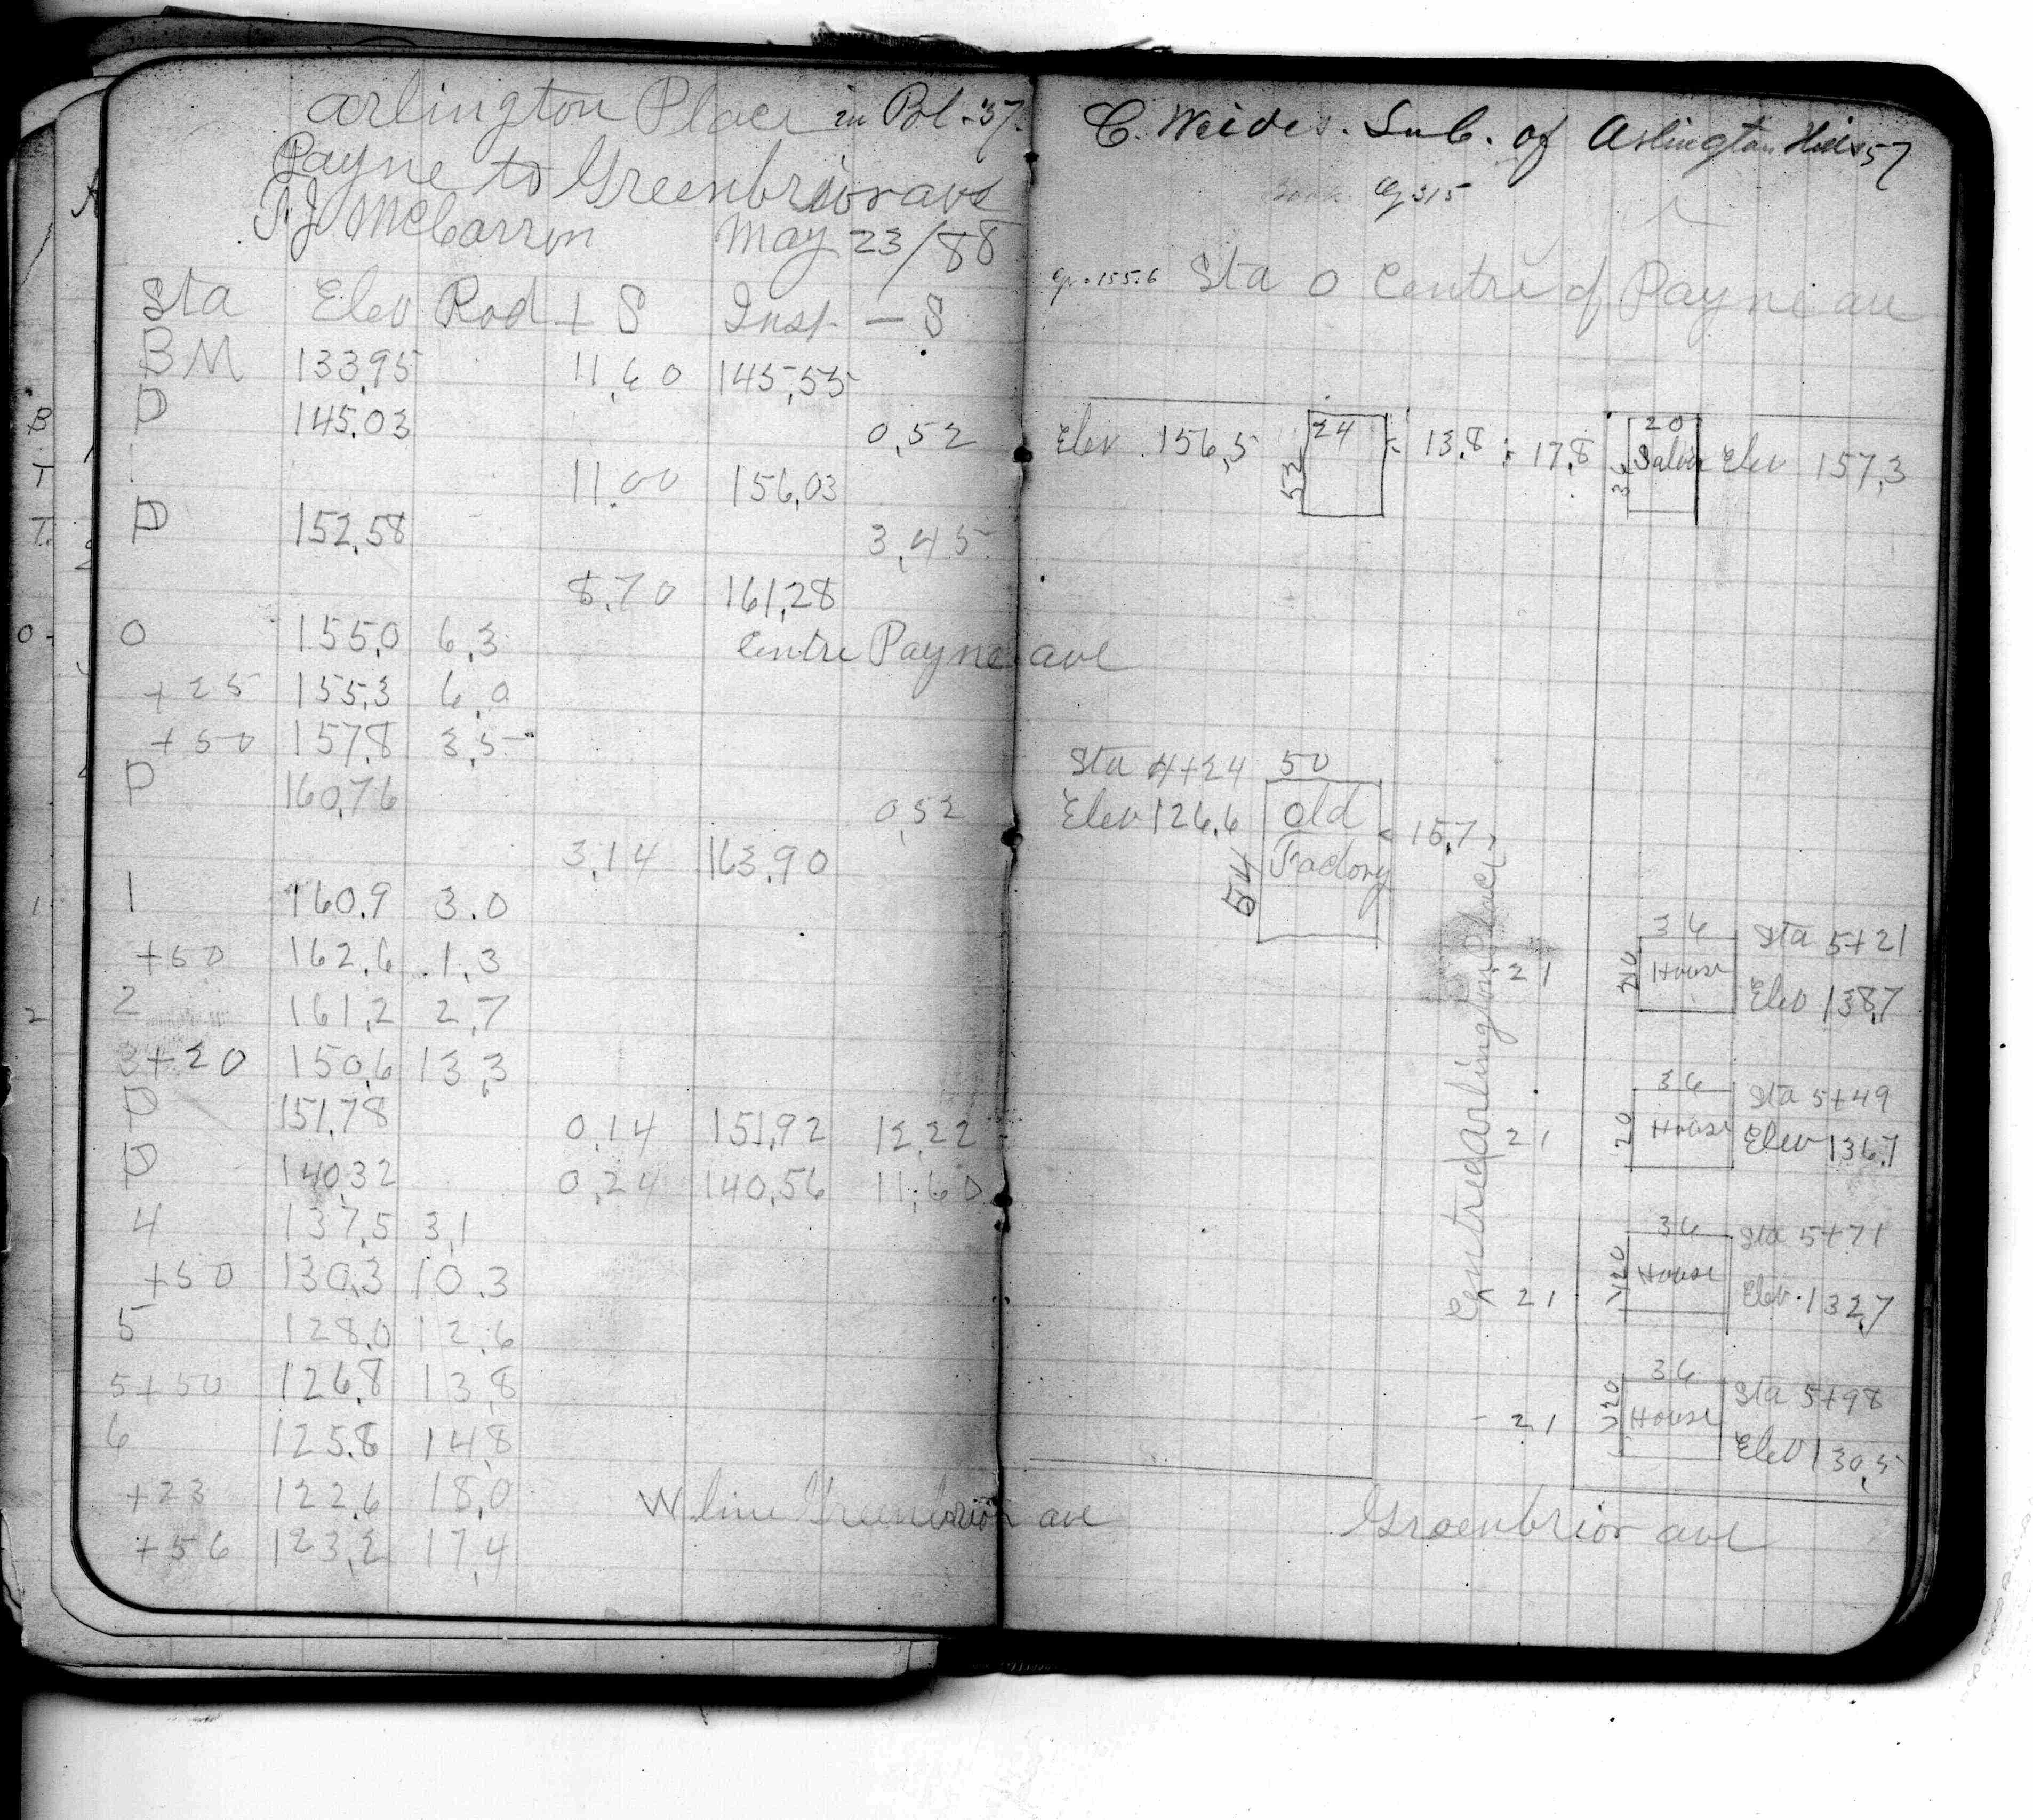 Arlington Place in Bl. 37.
Payne to Greenbrior ave
T.J. McCarron May 23/88
Sta Elev Rod + S Inst. - S
BM 133.95 11.60 145.55
P 145.03 0.52
11.00 156.03
P 152.58 3.45
8.70 161.28
0 155.0 6.3 Centre Payne ave
+25 155.3 6.0
+50 157.8 3.5
P 160.76 0.52
3.14 163.90
1 160.9 3.0
+50 162.6 1.3
2 161.2 2.7
3+20 150.6 13.3
P 151.78 0.14 151.92 12.22
P 140.32 0.24 140.56 11.60
4 137.5 3.1
+50 130.3 10.3
5 128.0 12.6
5+50 126.8 13.8
6 125.8 14.8
+23 122.6 18.0 W line Greenbrior ave
+56 123.2 17.4
C. Weides. Sub. of Arlington Hills 57
Book Cg 315
155.6 Sta 0 Centre of Payne ave
Elev 156.5 53 24 13.8 17.8 36 20 Saloon Elev 157.3
Sta 4+24 50
Elev 126.6 Old Factory 15.7
54
Centre Arlington Place
21 20 36 House Sta 5+21
Elev 138.7
21 20 36 House Sta 5+49
Elev 136.7
21 20 36 House Sta 5+71
Elev. 132.7
21 20 36 House Sta 5+98
Elev 130.5
Greenbrior ave
B
T
T.
0.
1
2